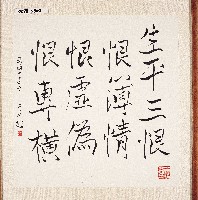 生平三恨
恨薄情
恨虛為
恨專橫